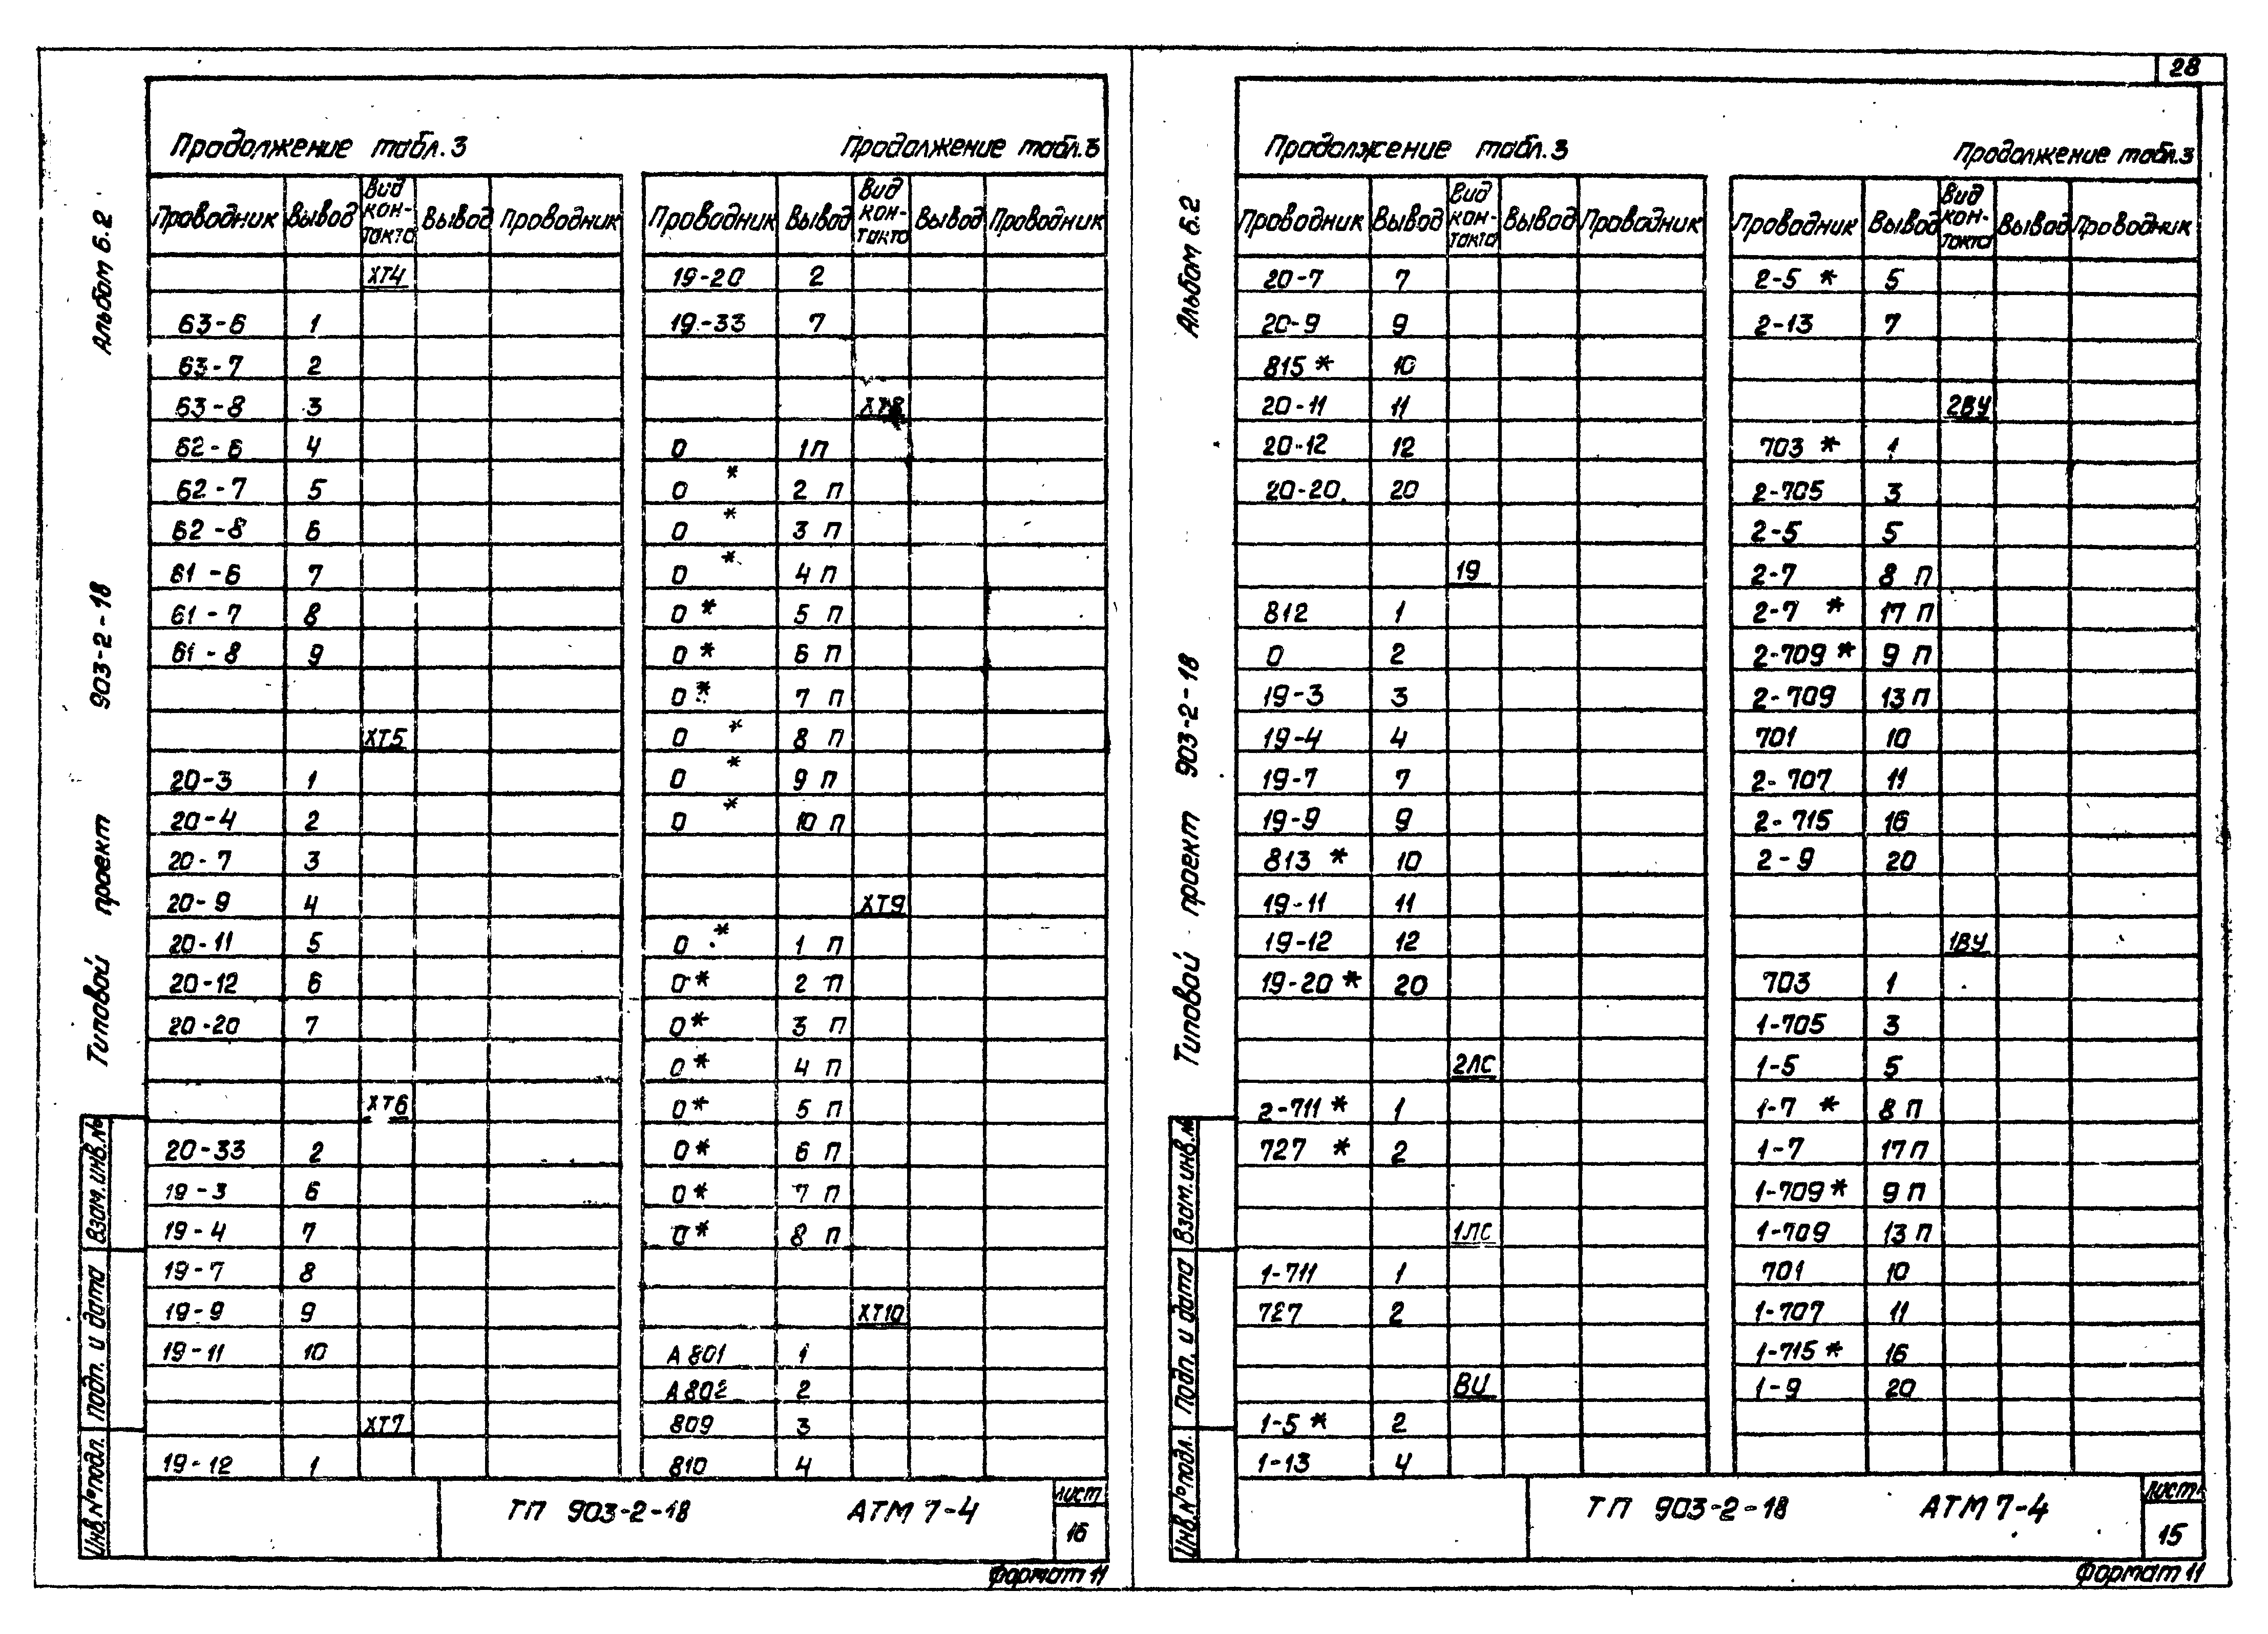 28
Альбом 6.2
903-2-18
Типовой проект
Взам.инв.№
Подп. и дата
Инв.№подл.
Продолжение табл.3
Проводник Вывод Вид кон-такта Вывод Проводник
ХТ4
63-6 1
63-7 2
63-8 3
62-6 4
62-7 5
62-8 6
61-6 7
61-7 8
61-8 9
ХТ5
20-3 1
20-4 2
20-7 3
20-9 4
20-11 5
20-12 6
20-20 7
ХТ6
20-33 2
19-3 6
19-4 7
19-7 8
19-9 9
19-11 10
ХТ7
19-12 1
Продолжение табл.3
Проводник Вывод Вид кон-такта Вывод Проводник
19-20 2
19-33 7
ХТ8
0 1П
0 * 2 П
0 * 3 П
0 * 4 П
0 * 5 П
0 * 6 П
0 * 7 П
0 * 8 П
0 * 9 П
0 * 10 П
ХТ9
0 * 1 П
0 * 2 П
0 * 3 П
0 * 4 П
0 * 5 П
0 * 6 П
0 * 7 П
0 * 8 П
ХТ10
А801 1
А802 2
809 3
810 4
ТП 903-2-18 АТМ 7-4
Лист
16
Формат 11
Альбом 6.2
903-2-18
Типовой проект
Взам.инв.№
Подп. и дата
Инв.№подл.
Продолжение табл.3
Проводник Вывод Вид кон-такта Вывод Проводник
20-7 7
20-9 9
815 * 10
20-11 11
20-12 12
20-20 20
19
812 1
0 2
19-3 3
19-4 4
19-7 7
19-9 9
813 * 10
19-11 11
19-12 12
19-20 * 20
2ЛС
2-711 * 1
727 * 2
1ЛС
1-711 1
727 2
ВИ
1-5 * 2
1-13 4
Продолжение табл.3
Проводник Вывод Вид кон-такта Вывод Проводник
2-5 * 5
2-13 7
2ВУ
703 * 1
2-705 3
2-5 5
2-7 8 П
2-7 * 17 П
2-709 * 9 П
2-709 13 П
701 10
2-707 11
2-715 16
2-9 20
1ВУ
703 1
1-705 3
1-5 5
1-7 * 8 П
1-7 17 П
1-709 * 9 П
1-709 13 П
701 10
1-707 11
1-715 * 16
1-9 20
ТП 903-2-18 АТМ 7-4
Лист
15
Формат 11